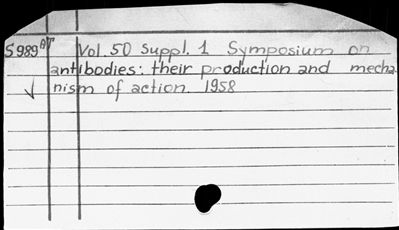 S989 Vol. 50 Suppl. 1 Symposium on
antibodies: their production and mecha
nism of action. 1958